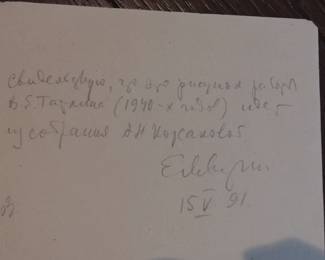 Свидетельствую, что это рисунок работы
В.Е. Татлина (1940-х годов) идет
из собрания АН Корсаковой
15 V 91.